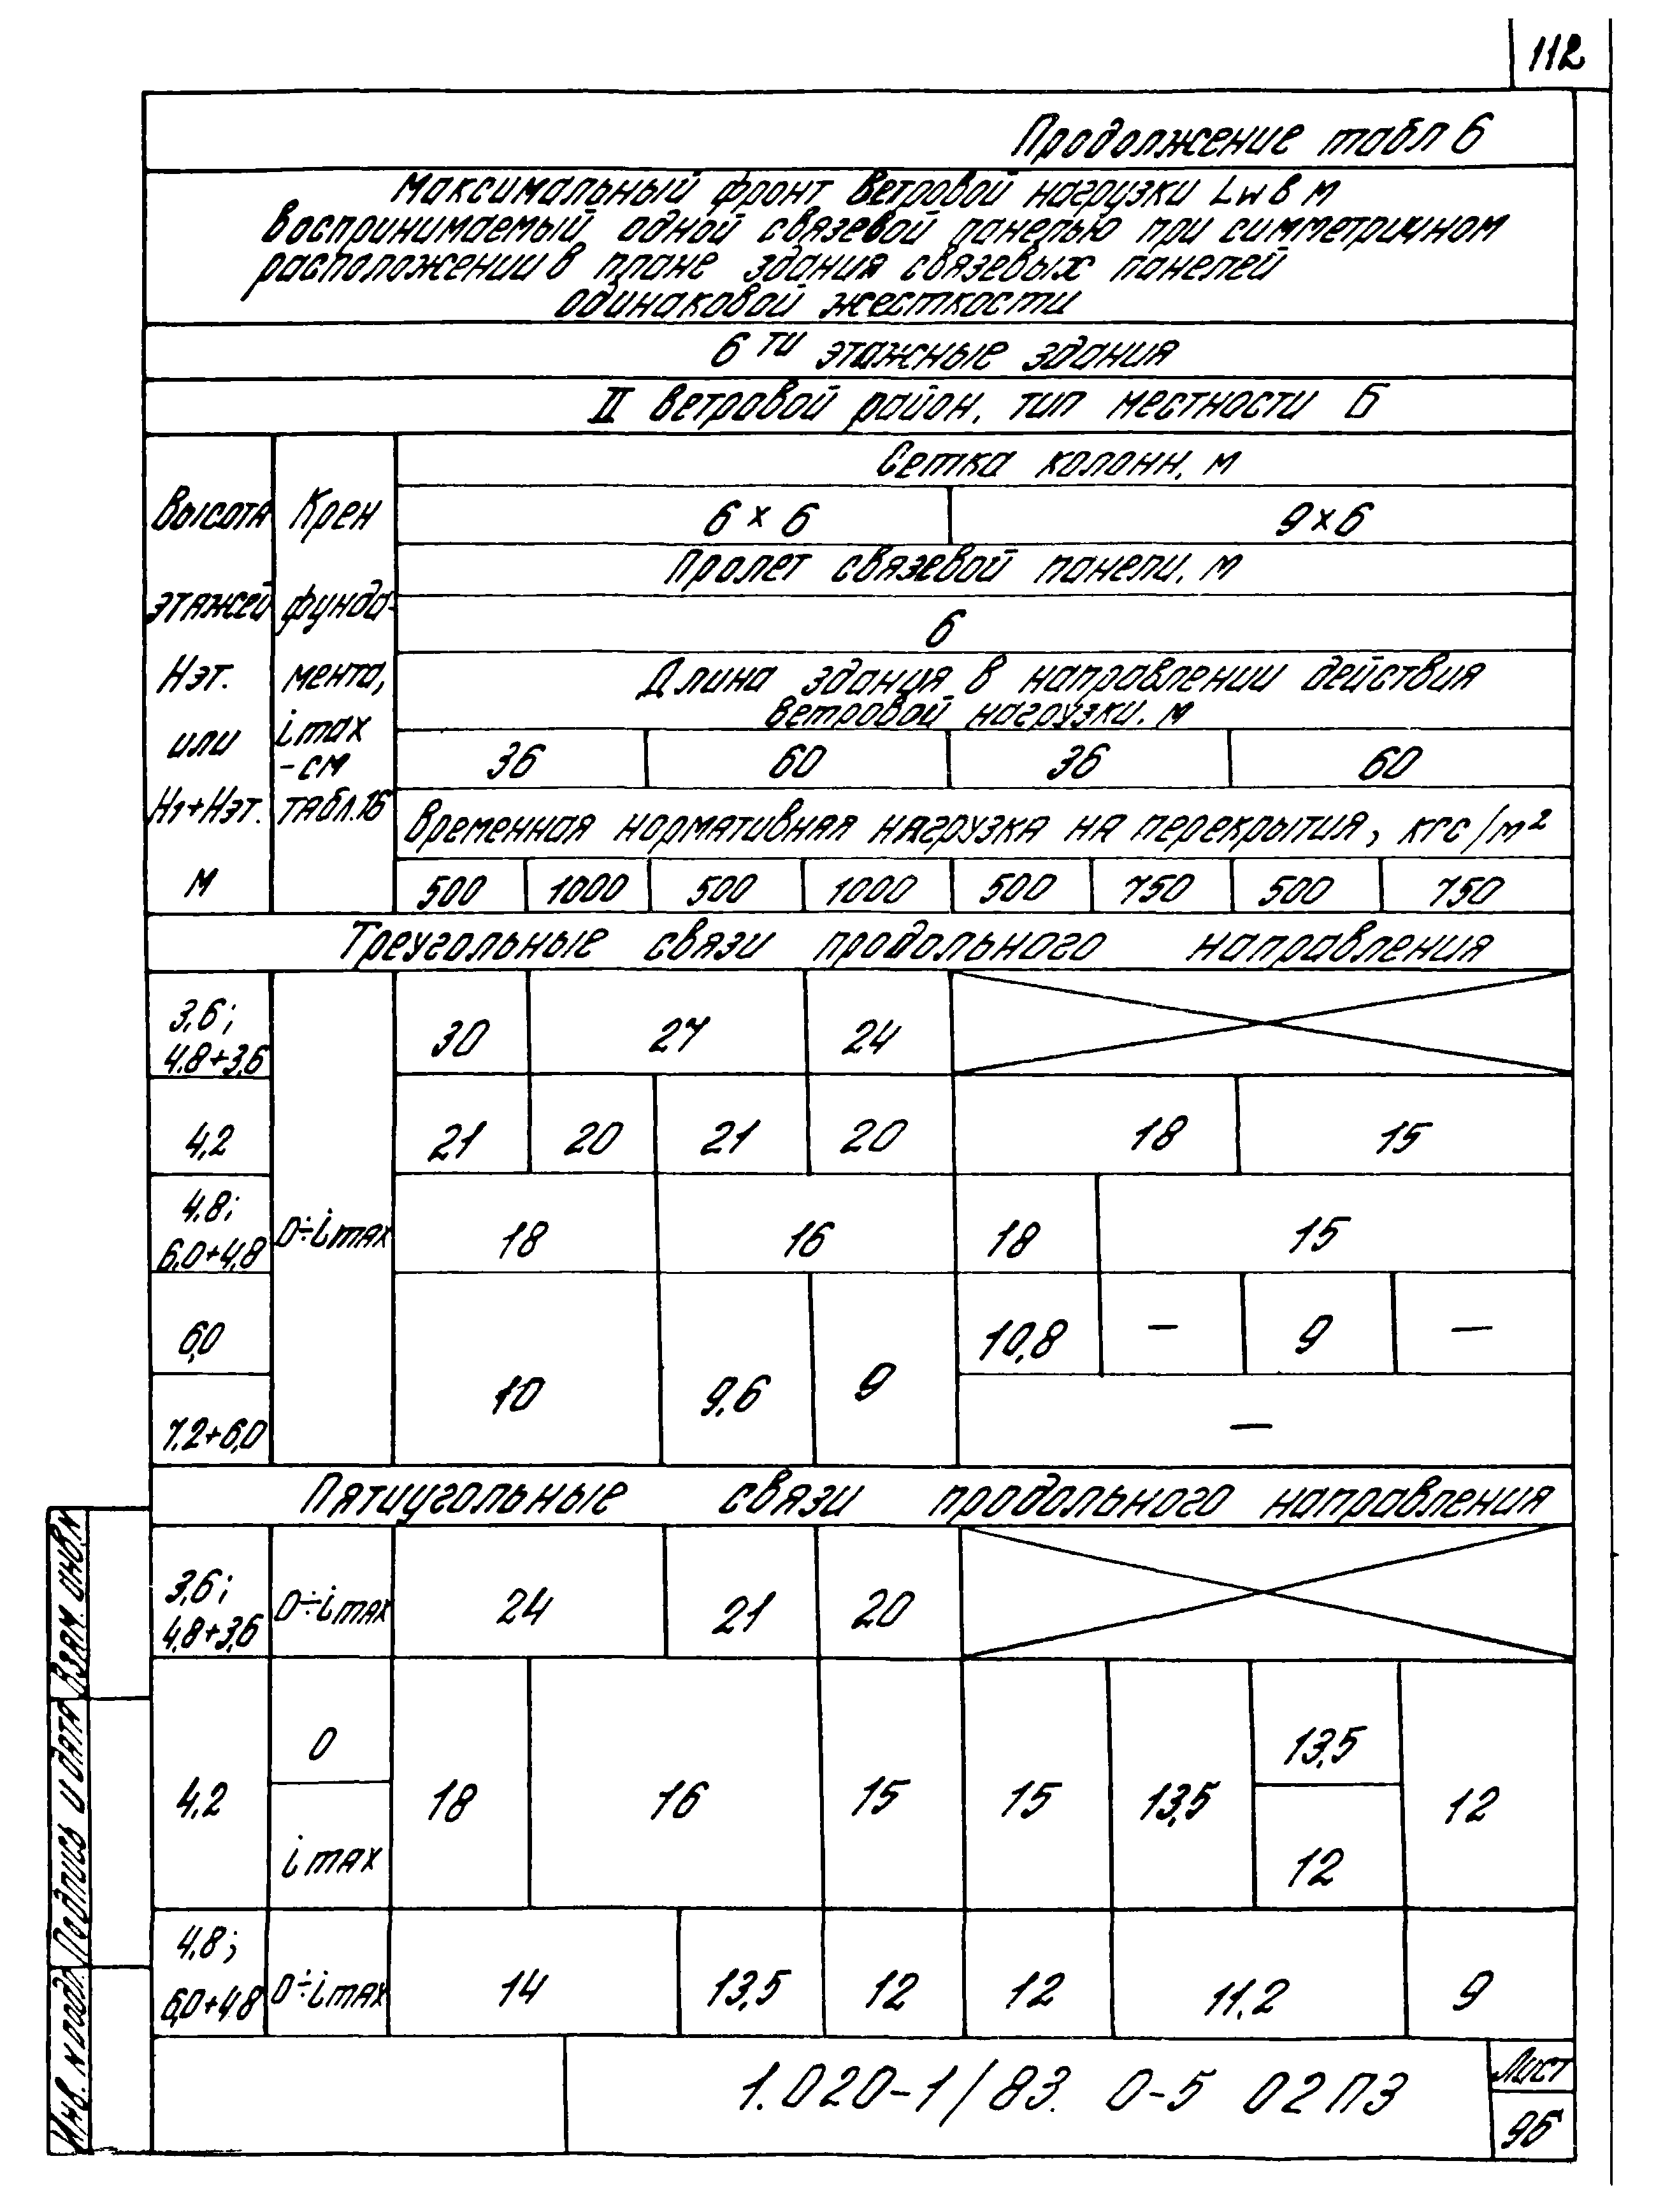 112
Продолжение табл 6
Максимальный фронт ветровой нагрузки Lw в м
воспринимаемый одной связевой панелью при симметричном
расположении в плане здания связевых панелей
одинаковой жесткости
6ти этажные здания
II ветровой район, тип местности Б
Высота
этажей
Нэт.
или
Н1+Нэт.
м
Крен
фунда-
мента,
imax
-см
табл.16
Сетка колонн, м
6×6 9×6
Пролет связевой панели, м
6
Длина здания в направлении действия
ветровой нагрузки, м
36 60 36 60
Временная нормативная нагрузка на перекрытия, кгс/м²
500 1000 500 1000 500 750 500 750
Треугольные связи продольного направления
3,6;
4.8+3,6
30 27 24
4,2 21 20 21 20 18 15
4.8;
6,0+4,8
0÷imax
18 16 18 15
6,0 10,8 — 9 —
7.2+6,0 10 9,6 9 —
Пятиугольные связи продольного направления
3,6;
4,8+3,6
0÷imax
24 21 20
4,2
0
imax
18 16 15 15 13,5
13,5
12
12
4,8;
6,0+4,8
0÷imax
14 13,5 12 12 11,2 9
1.020-1/83. 0-5 02ПЗ
Лист
96
Взам. инв.N
Подпись и дата
Инв. N подл.